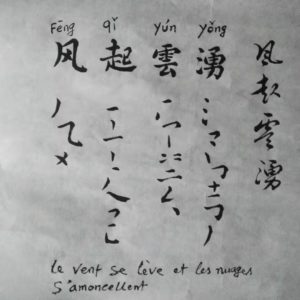 Fēng qǐ yún yǒng
风起雲湧
风起雲湧
le vent se lève et les nuages
s'amoncellent